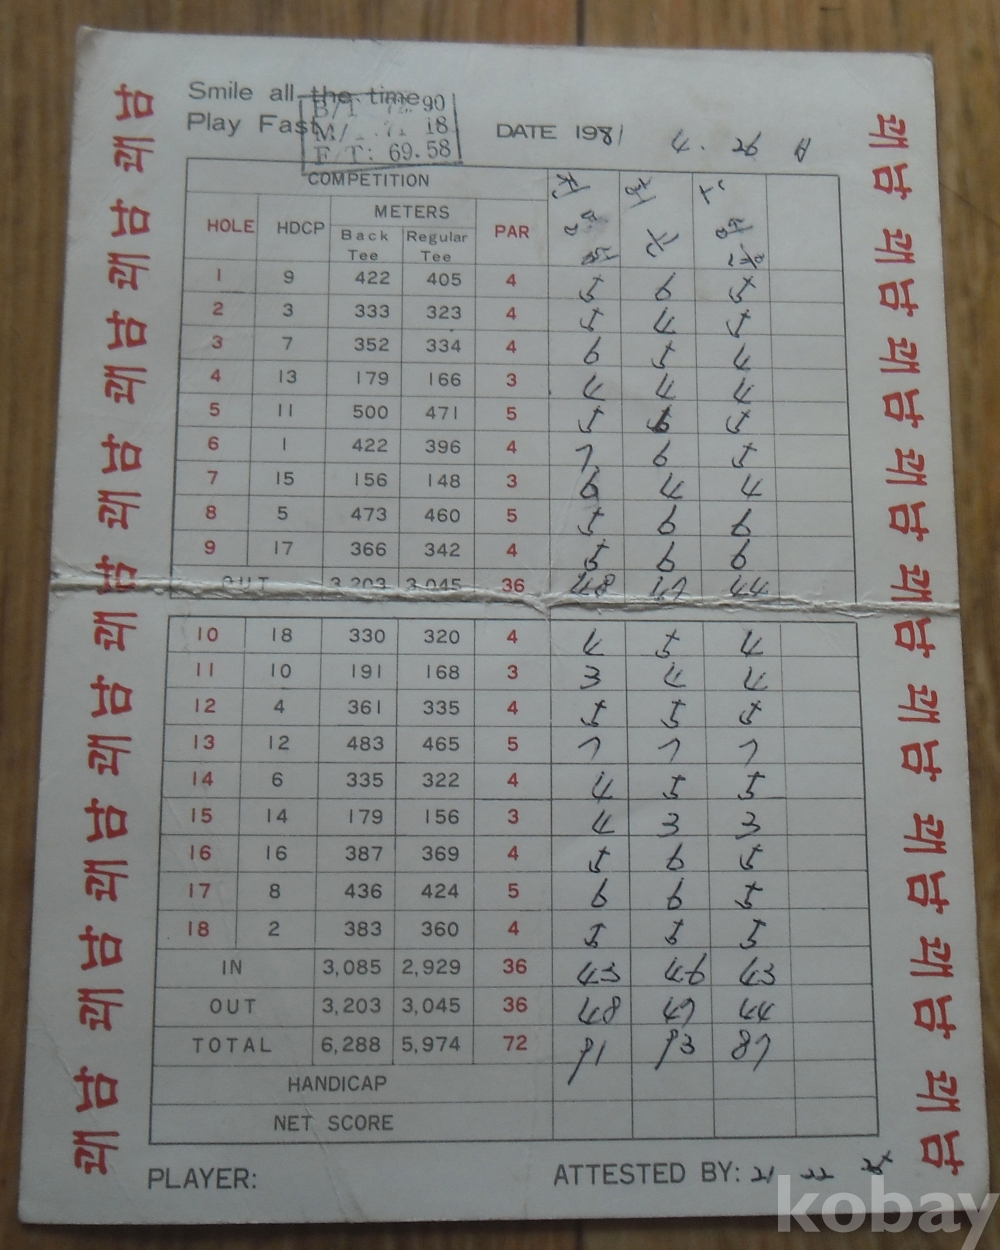 Smile all the time
Play Fast
90
M/ 71.18
F/T: 69.58
DATE 1981 4. 26
COMPETITION
HOLE HDCP METERS PAR
Back Tee Regular Tee
1 9 422 405 4 5 6 5
2 3 333 323 4 5 4 5
3 7 352 334 4 6 5 4
4 13 179 166 3 4 4 4
5 11 500 471 5 5 6 5
6 1 422 396 4 7 6 5
7 15 156 148 3 6 4 4
8 5 473 460 5 5 6 6
9 17 366 342 4 5 6 6
OUT 3,203 3,045 36 48 47 44
10 18 330 320 4 4 5 4
11 10 191 168 3 3 4 4
12 4 361 335 4 5 5 5
13 12 483 465 5 7 7 7
14 6 335 322 4 4 5 5
15 14 179 156 3 4 3 3
16 16 387 369 4 5 6 5
17 8 436 424 5 6 6 5
18 2 383 360 4 5 5 5
IN 3,085 2,929 36 43 46 43
OUT 3,203 3,045 36 48 47 44
TOTAL 6,288 5,974 72 91 93 87
HANDICAP
NET SCORE
PLAYER:
ATTESTED BY: 21 22
쾌남 쾌남 쾌남 쾌남 쾌남 쾌남 쾌남 쾌남 쾌남
쾌남 쾌남 쾌남 쾌남 쾌남 쾌남 쾌남 쾌남 쾌남
kobay